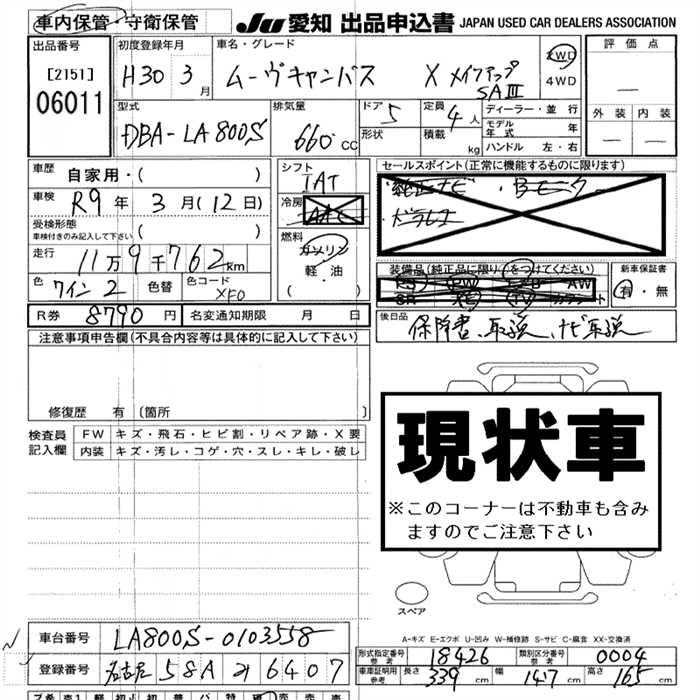 車内保管・守衛保管
JU 愛知 出品申込書 JAPAN USED CAR DEALERS ASSOCIATION
出品番号
[2151]
06011
初度登録年月
H30 3月
車名・グレード
ムーヴキャンバス X メイクアップ
SAⅢ
2WD
4WD
評価点
外装 内装
型式
DBA-LA800S
排気量
660cc
ドア 5
形状
定員 4人
積載 kg
ディーラー・並行
モデル年式 年
ハンドル 左・右
車歴 自家用・( )
車検 R9年3月(12日)
受検形態
車検付きのみ記入して下さい ( )
走行 11万9千762km
色 ワイン2 色替 色コード XFO
シフト IAT
冷房 AAC
燃料 ガソリン
軽・油
( ・ )
セールスポイント(正常に機能するものに限ります)
純正ナビ・Bモニタ
ドラレコ
装備品(純正品に限り○をつけてください)
PS PW エアB AW
SR 革 TV カワシート
新車保証書
有・無
R券 8790円 名変通知期限 月 日
後日品 保障書、取説、ナビ取説
注意事項申告欄(不具合内容等は具体的に記入して下さい)
修復歴 有(箇所 )
検査員記入欄
FW キズ・飛石・ヒビ割・リペア跡・X要
内装 キズ・汚レ・コゲ・穴・スレ・キレ・破レ
現状車
※このコーナーは不動車も含み
ますのでご注意下さい
スペア
A-キズ E-エクボ U-凹み W-補修跡 S-サビ C-腐食 XX-交換済
車台番号 LA800S-0103558
登録番号 名古屋 58A み 6407
形式指定番号 参考 18426 類別区分番号 参考 0004
車庫証明用 参考 長さ 339cm 幅 147cm 高さ 165cm